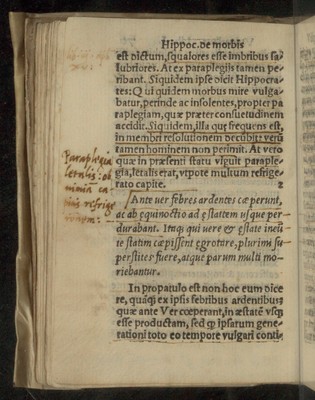 Hippoc. de morbis
est dictum, squalores esse imbribus sa-
lubriores. At ex paraplegijs tamen pe-
ribant. Siquidem ipse dicit Hippocra-
tes: Qui quidem morbus mire vulga-
batur, perinde ac insolentes, propter pa
raplegiam, quæ præter consuetudinem
accidit. Siquidem, illa quę frequens est,
in membri resolutionem decubite verũ
tamen hominem non perimit. At vero
quæ in præsenti statu viguit paraple-
gia, letalis erat, vtpote multum refrige-
rato capite.
Paraplegia
letalis: ob
nimiũ ca
pitis refrige
Ante uer febres ardentes cœperunt,
ac ab ęquinoctio ad ęstatem usque per-
durabant. Itaq; qui uere & ęstate ineũ
te statim cœpissent ęgrotare, plurimi su-
perstites fuere, atque parum multi mo-
riebantur.
In propatulo est non hoc eum dice
re, quãq; ex ipsis febribus ardentibus
quæ ante Ver cœperant, in æstatẽ vsq;
esse productam, sed ꝙ ipsarum gene-
rationi toto eo tempore vulgari conti-